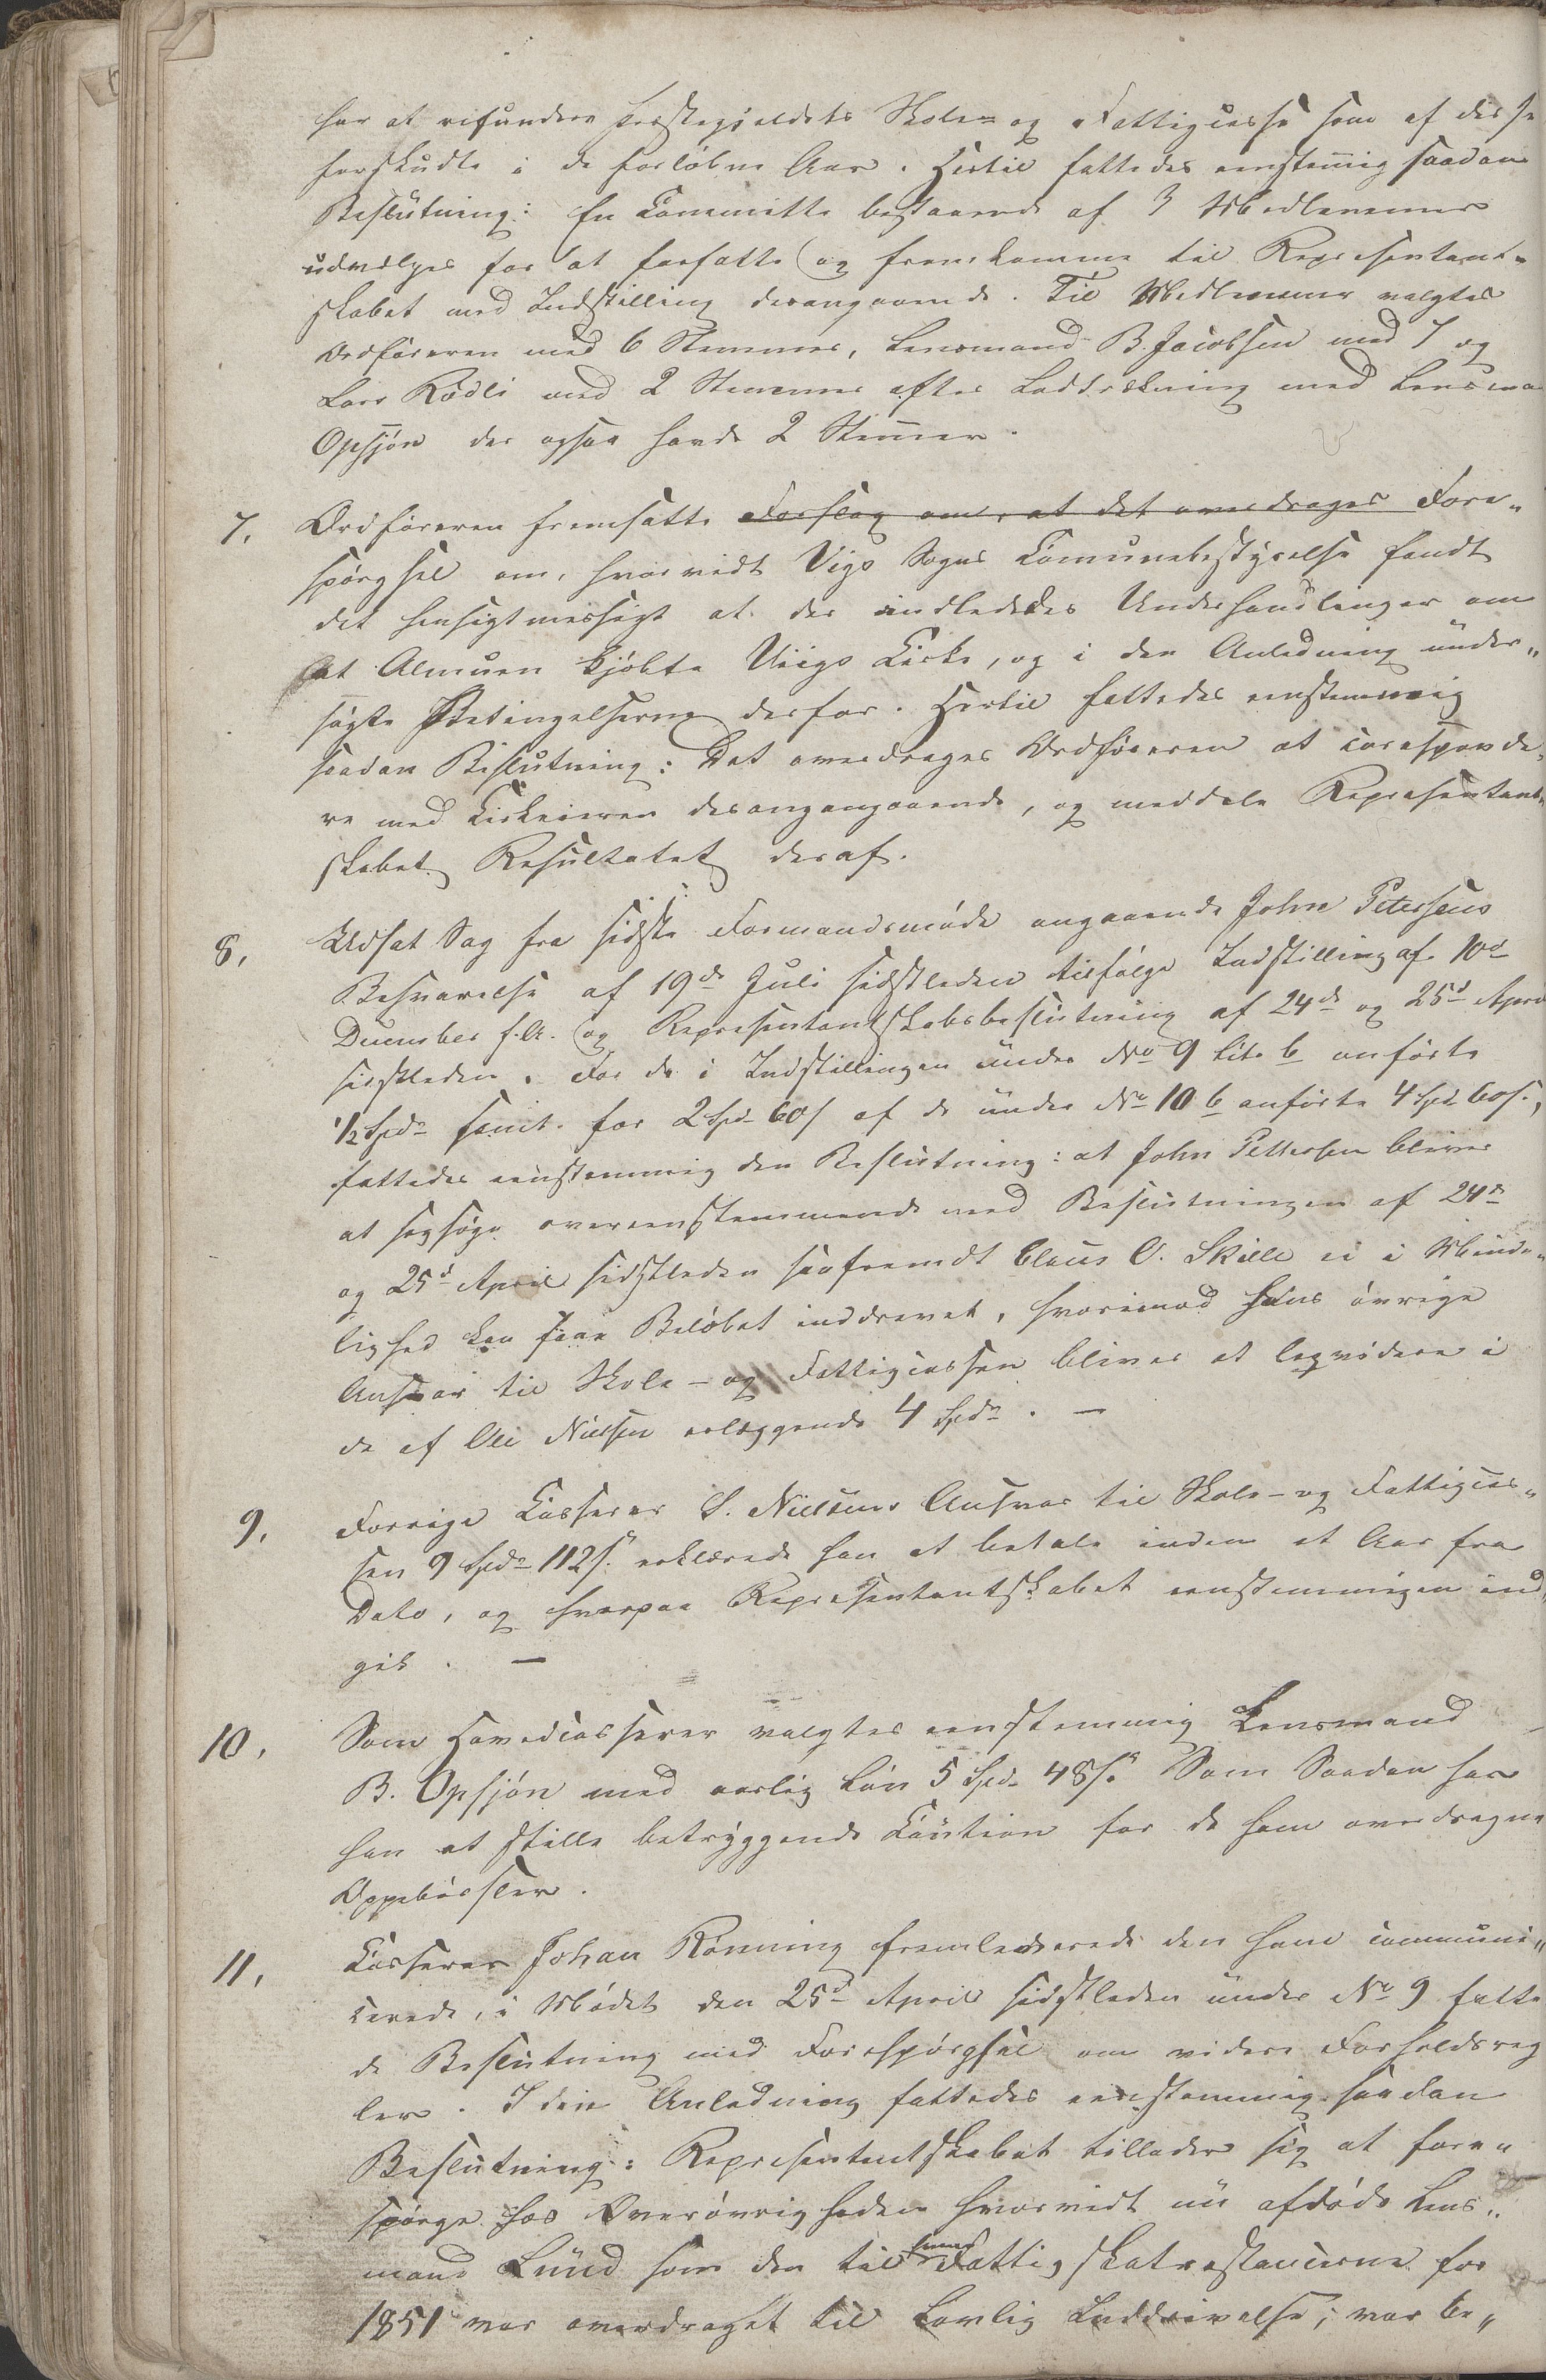 har at refundere Præstegjeldets Skole- og Fattigcasse som af disse
forskudte i de forløbne Aar. Hertil fattedes eenstemig saadan
Beslutning: En Committe bestaaende af 3 Medlemmer
udvælges for at forfatte og fremkomme til Representant-
skabet med Indstilling desangaaende. Til Medlemmer valgtes
Ordføreren med 6 Stemmer, Lensmand B. Jacobsen med 7 og
Lars Rødli med 2 Stemmer efter Loddrækning med Lensma
Opsjøn der ogsaa havde 2 Stemmer.
7. Ordføreren fremsatte Forslag om, at det overdrages Fore-
spørgsel om, hvorvidt Vigs Sogns Comunebestyrelse fandt
det hensigtmessigt at der indlededes Underhandlinger om
at Almuen kjøbte Viigs Kirke, og i den Anledning under-
søgte Betingelserne derfor. Hertil fattedes eenstemmig
saadan Beslutning: Det overdrages Ordføreren at coresponde-
re med Kirkeieren desangangaaende, og meddele Representant-
skabet Resultatet deraf.
8. Udsat Sag fra sidste Formandsmøde angaaende John Petersens
Besvarelse af 19de Juli sidstleden tilfølge Indstilling af 10d
December f.A. og Representantskabsbeslutning af 24de og 25d April
sidstleden. For de i Indstillingen under No 9 Litr b anførte
1/2 Spd samt for 2 Spd 60s af de under No 10 b anførte 4 Spd 60s.,
fattedes eenstemmig den Beslutning: at John Pettersen bliver
at søgsøge overeenstemmende med Beslutningen af 24de
og 25d April sidstleden saafremt Claus O. Skille ei i Minde-
lighed kan faae Beløbet inddrevet, hvorimod hans øvrige
Ansvar til Skole- og Fattigcassen bliver at leqvidere i
de af Ole Nielsen erlæggende 4 Spd. —
9. Forrige Casserer S. Nielsens Ansvar til Skole- og Fattigcas-
sen 9 Spd 112s. erklærede han at betale inden et Aar fra
Dato, og hvorpaa Representantskabet eenstemmigen ind-
gik. —
10. Som Hovedcasserer valgtes eenstemmig Lensmand
B. Opsjøn med aarlig Løn 5 Spd 48s. Som Saadan har
han at stille betryggende Caution for de ham overdragne
Oppebørsler.
11. Casserer Johan Rønning fremleverede den ham communi-
cerede, i Mødet den 25d April sidstleden under No 9 fatte
de Beslutning med Forespørgsel om videre Forholdsreg
ler. I den Anledning fattedes eenstemmig saadan
Beslutning: Representantskabet tillader sig at fore-
spørge hos Overøvrigheden hvorvidt nu afdøde Lens-
mand Lund som den til Fattigskatrestancerne for
1851 var overdraget til Lovlig Inddrivelse, var be-